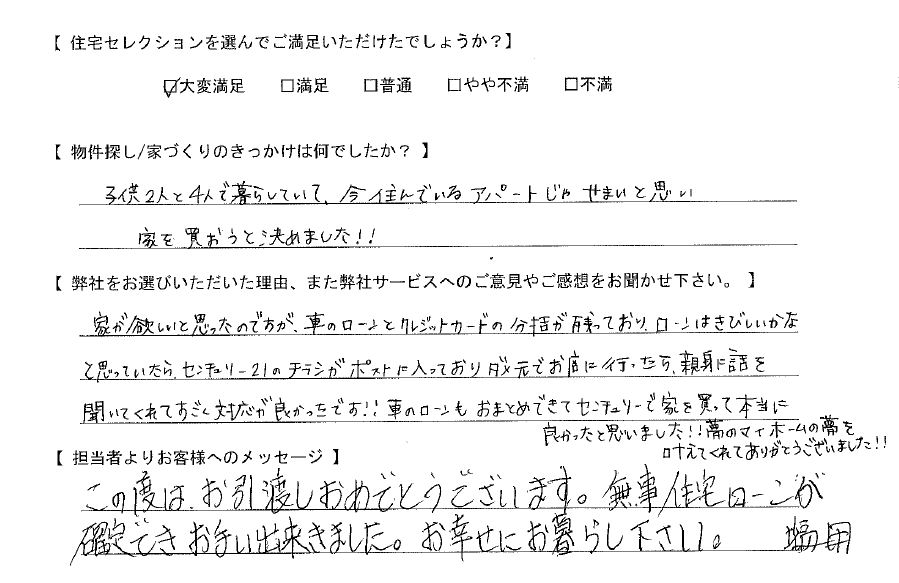 【 住宅セレクションを選んでご満足いただけたでしょうか？】
☑大変満足 □満足 □普通 □やや不満 □不満
【 物件探し/家づくりのきっかけは何でしたか？ 】
子供2人と4人で暮らしていて、今住んでいるアパートじゃせまいと思い
家を買おうと決めました!!
【 弊社をお選びいただいた理由、また弊社サービスへのご意見やご感想をお聞かせ下さい。 】
家が欲しいと思ったのですが、車のローンとクレジットカードの分括が残っており、ローンはきびしいかな
と思っていたら、センチュリー21のチラシがポストに入っておりダメ元でお店に行ったら、親身に話を
聞いてくれてすごく対応が良かったです!! 車のローンもおまとめできてセンチュリーで家を買って本当に
良かったと思いました!!夢のマイホームの夢を
叶えてくれてありがとうございました!!
【 担当者よりお客様へのメッセージ 】
この度は、お引渡しおめでとうございます。無事住宅ローンが
確定でき お手い出来きました。お幸せにお暮らし下さい。